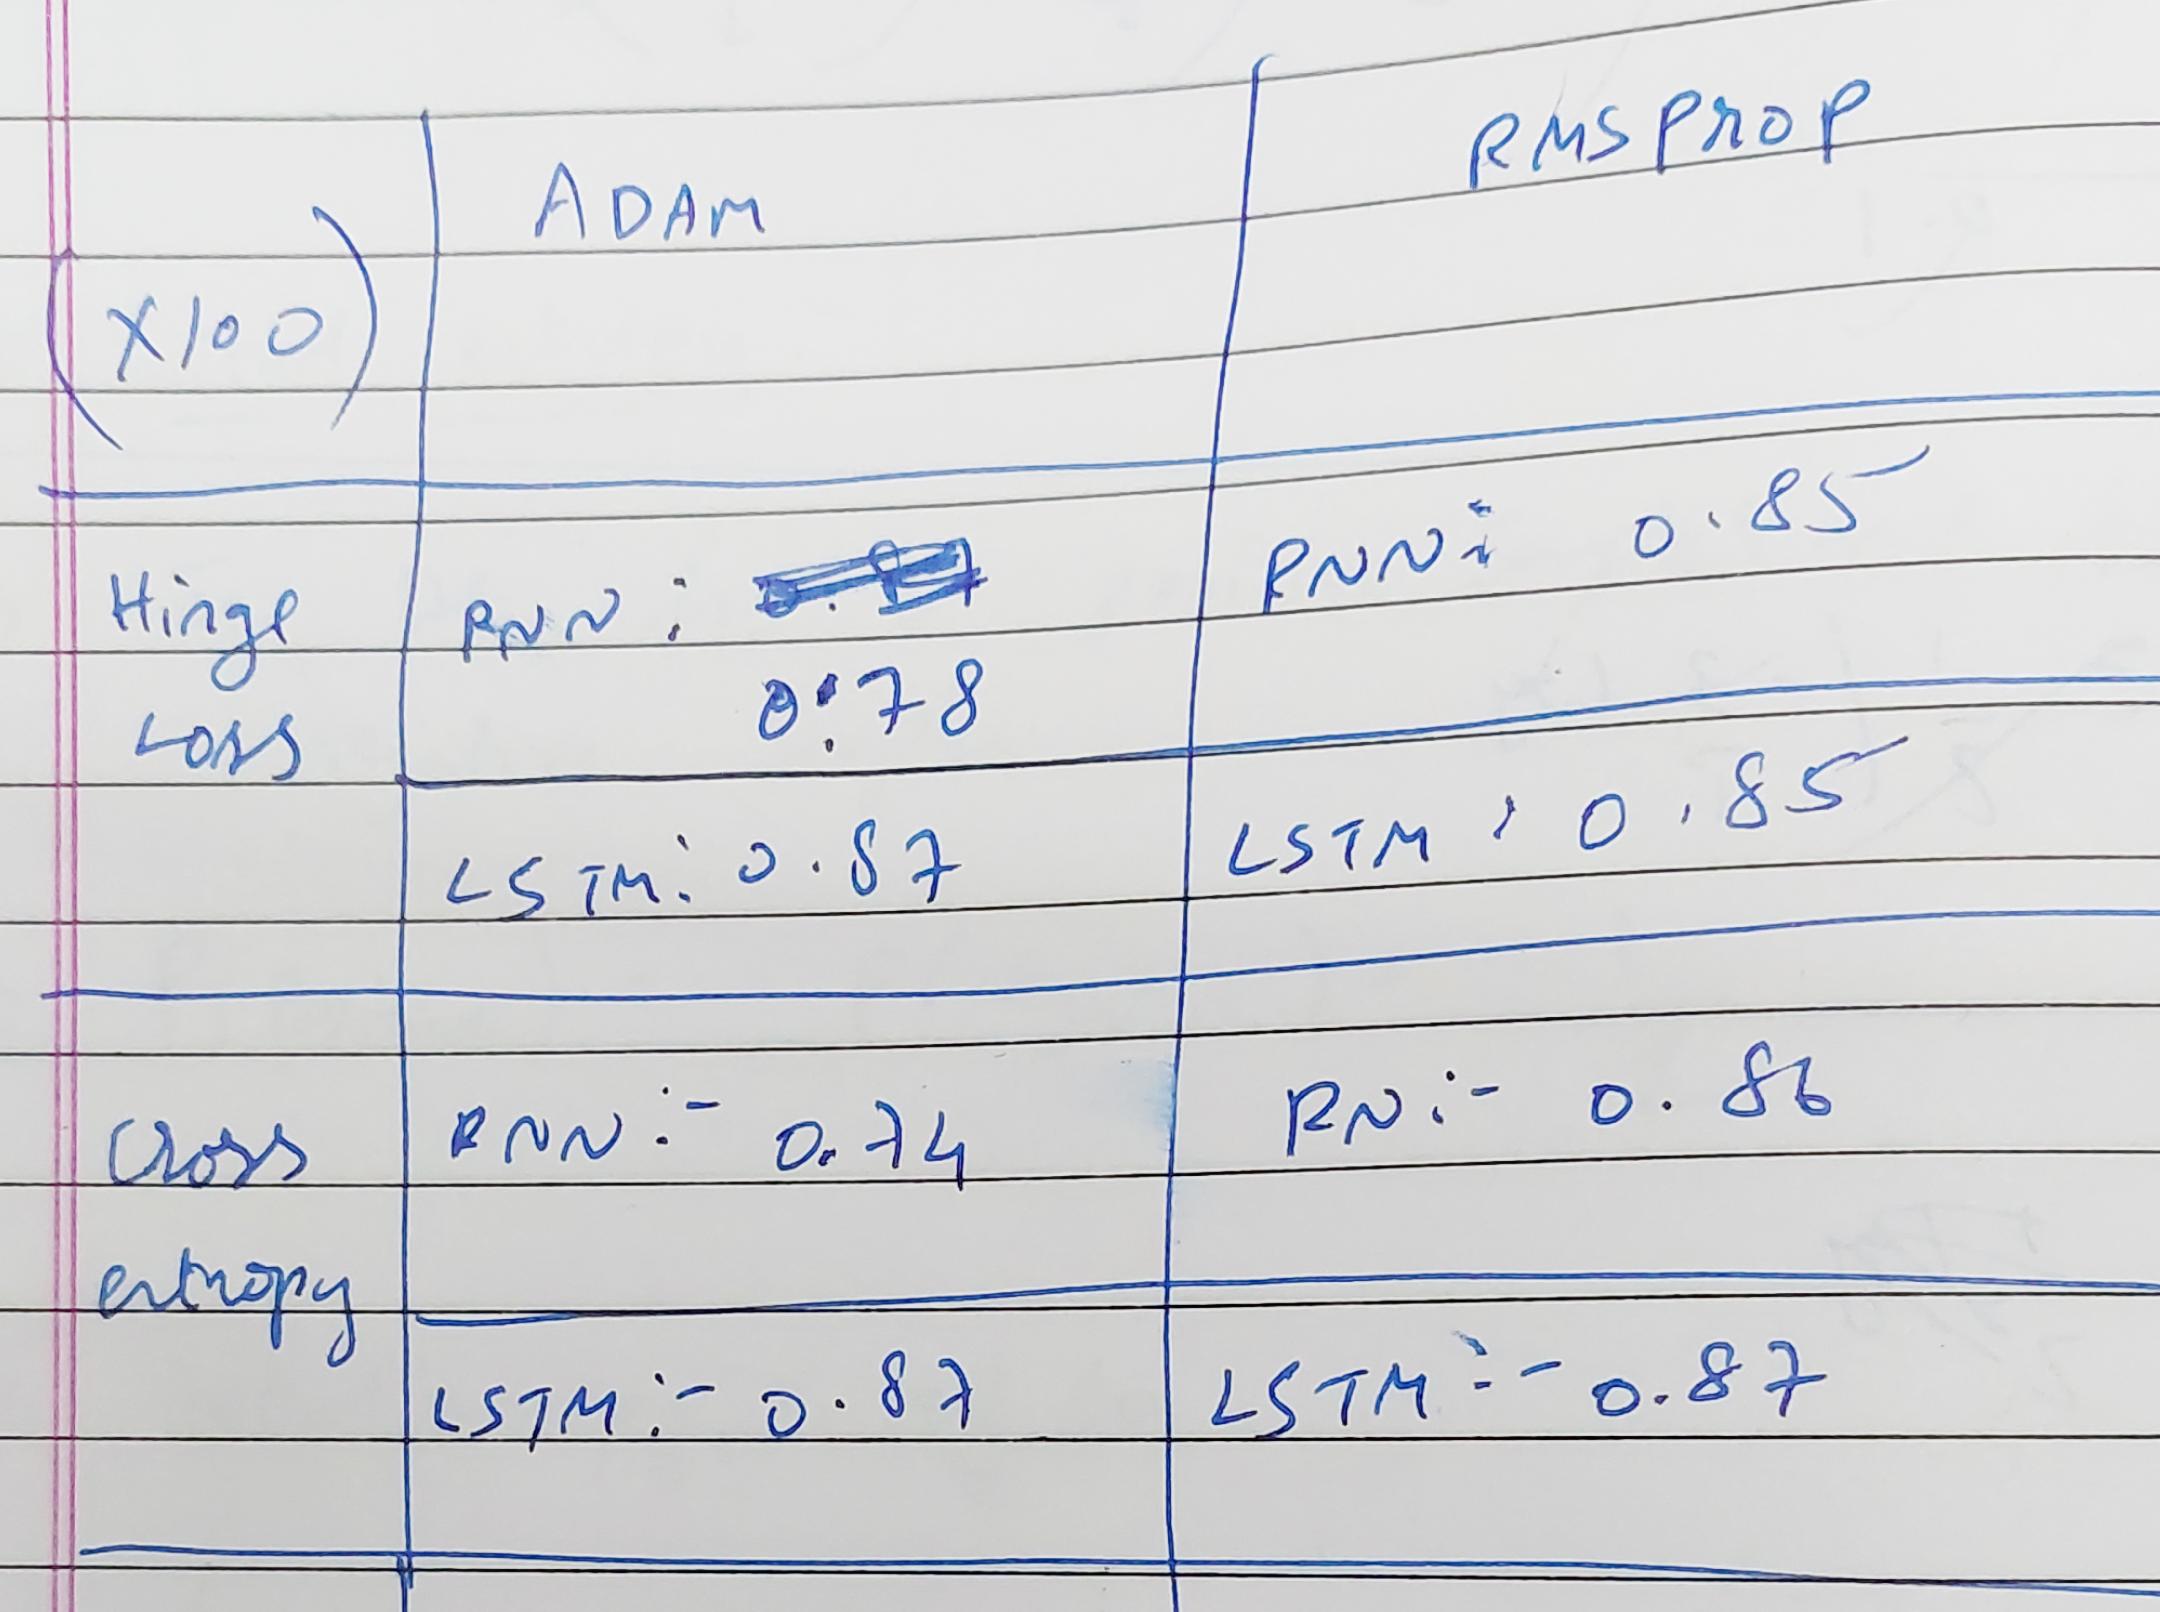 ADAM
RMSPROP
(X100)
Hinge
Loss
RNN :
0.78
RNN: 0.85
LSTM: 0.87
LSTM : 0.85
Cross
entropy
RNN:- 0.74
RN:- 0.86
LSTM:- 0.87
LSTM:- 0.87